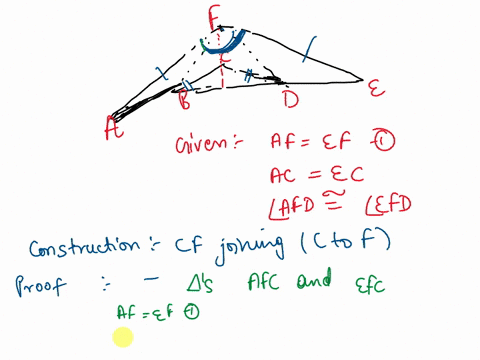 F
C
B
D
E
A
Given :- AF = EF ①
AC = EC
∠AFD ≅ ∠EFD
Construction :- CF joining (C to F)
Proof :- - Δ's AFC and EFC
AF = EF ①